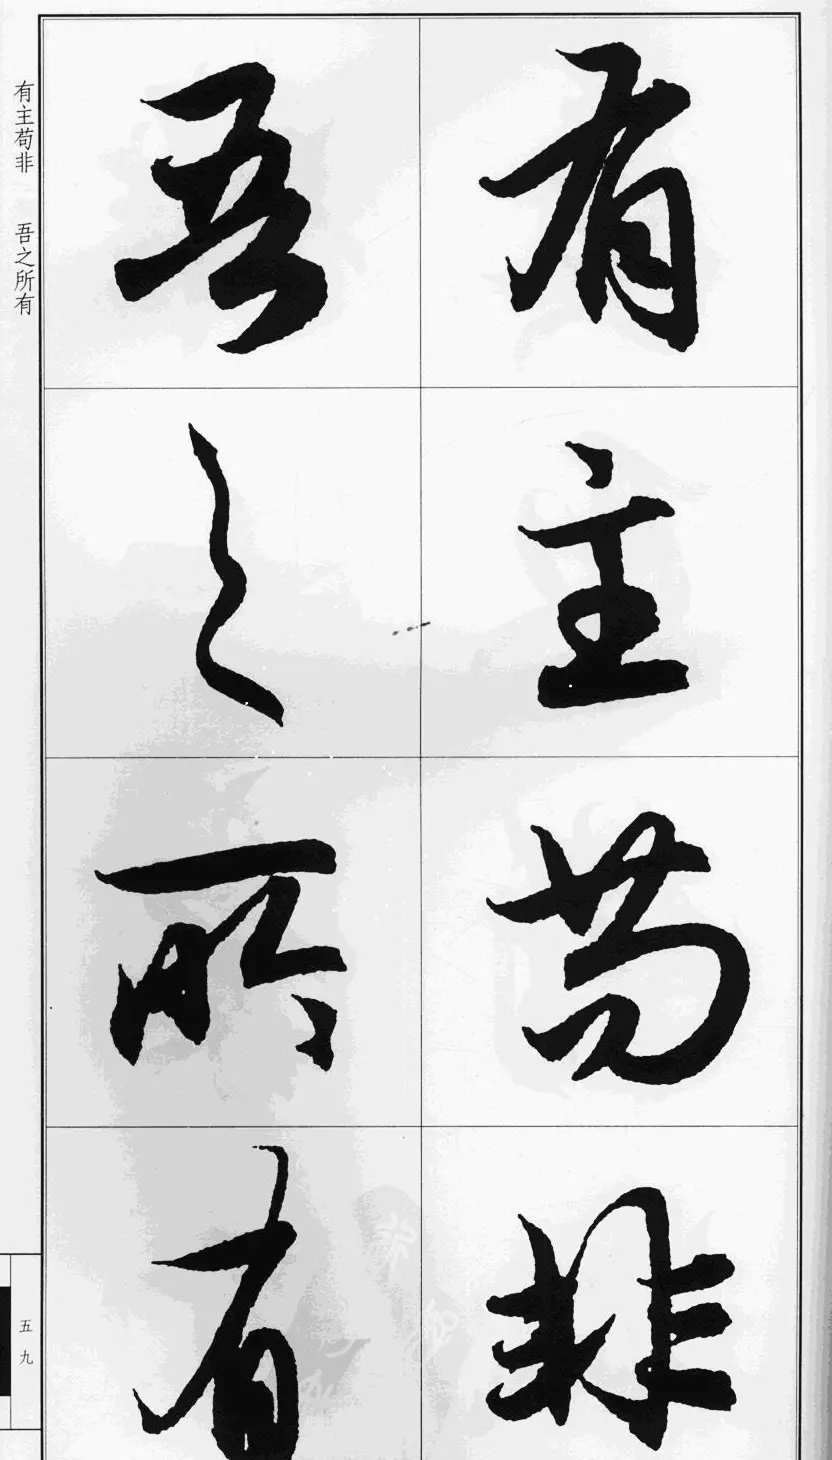 有主苟非
吾之所有
有主苟非 吾之所有
五九